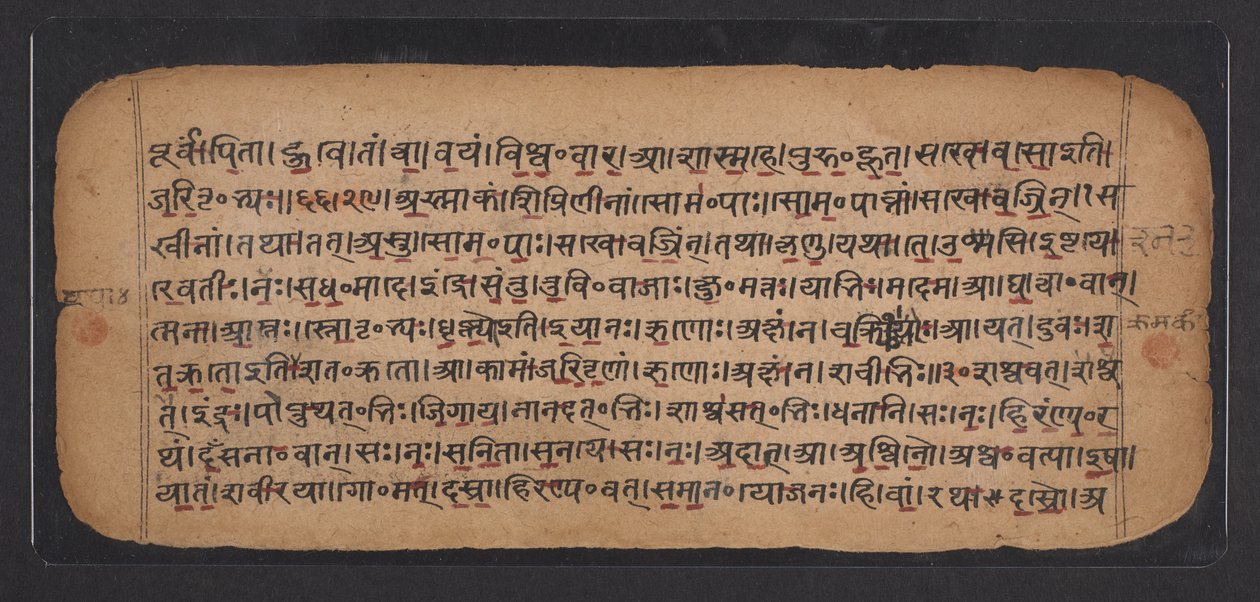 पूर्वं।पिता।हुवे।तं।त्वा।वयं।विश्व॰वार।आ।शास्महे।पुरु॰हूत।सखे।वसो।इति
जरितृ॰भ्यः॥६६।२९।अस्माकं।शिप्रिणीनां।सोम॰पाः।सोम॰पाव्नां।सखे।वज्रिन्।स
खीनां।तथा।तत्।अस्तु।सोम॰पाः।सखे।वज्रिन्।तथा।कृणु।यथा।ते।उश्मसि।इष्टये।
रेवतीः।नः।सध॰मादे।इंद्रे।संतु।तुवि॰वाजाः।क्षु॰मंतः।याभिः।मदेम।आ।घ।त्वा॰वान्।
त्मना।आप्तः।स्तोतृ॰भ्यः।धृष्णोइति।इयानः।ऋणोः।अक्षं।न।चक्र्योः।आ।यत्।दुवः।श
तक्रतोइति।शत॰क्रतो।आ।कामं।जरितॄणां।ऋणोः।अक्षं।न।शचीभिः॥३०शश्वत्।शश्व
त्।इंद्रः।पोप्रुथत्॰भिः।जिगाय।नानदत्॰भिः।शाश्वसत्॰भिः।धनानि।सः।नः।हिरण्य॰र
थं।दंसना॰वान्।सः।नः।सनिता।सनये।सः।नः।अदात्।आ।अश्विनौ।अश्व॰वत्या।इषा।
यातं।शवीरया।गो॰मत्।दस्रा।हिरण्य॰वत्।समान॰योजनः।हि।वां।रथः।दस्रौ।अ